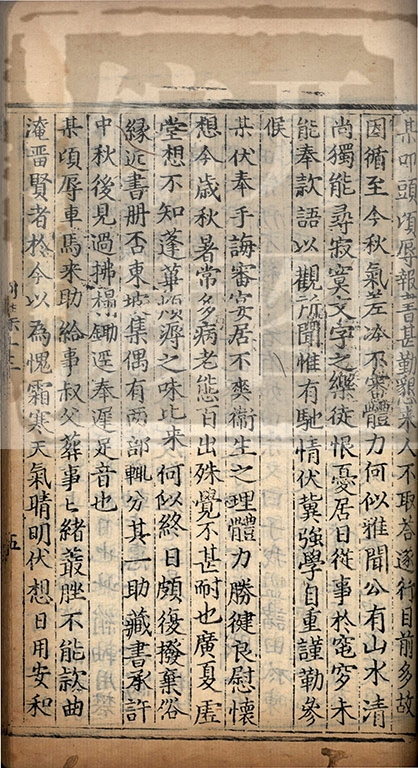 某叩頭頃辱報書甚勤懇來人不取答遂行目前多故
因循至今秋氣差冷不審體力何似雅聞公有山水清
尚獨能尋寂寞文字之樂徒恨憂居日從事於窀穸未
能奉款語以觀所聞惟有馳情伏冀強學自重謹勤參
候
某伏奉手誨審宴居不爽衞生之理體力勝健良慰懷
想今歲秋暑常多病老態百出殊覺不甚耐也廣夏虛
堂想不知蓬蓽煩溽之味比來何似終日頗復撥棄俗
緣近書册否東坡集偶有兩部輒分其一助藏書承許
中秋後見過拂榻鋤逕奉遲足音也
某頃辱車馬來助給事叔父葬事匕緒叢脞不能款曲
淹晤賢者於今以為愧霜寒天氣晴明伏想日用安和
五